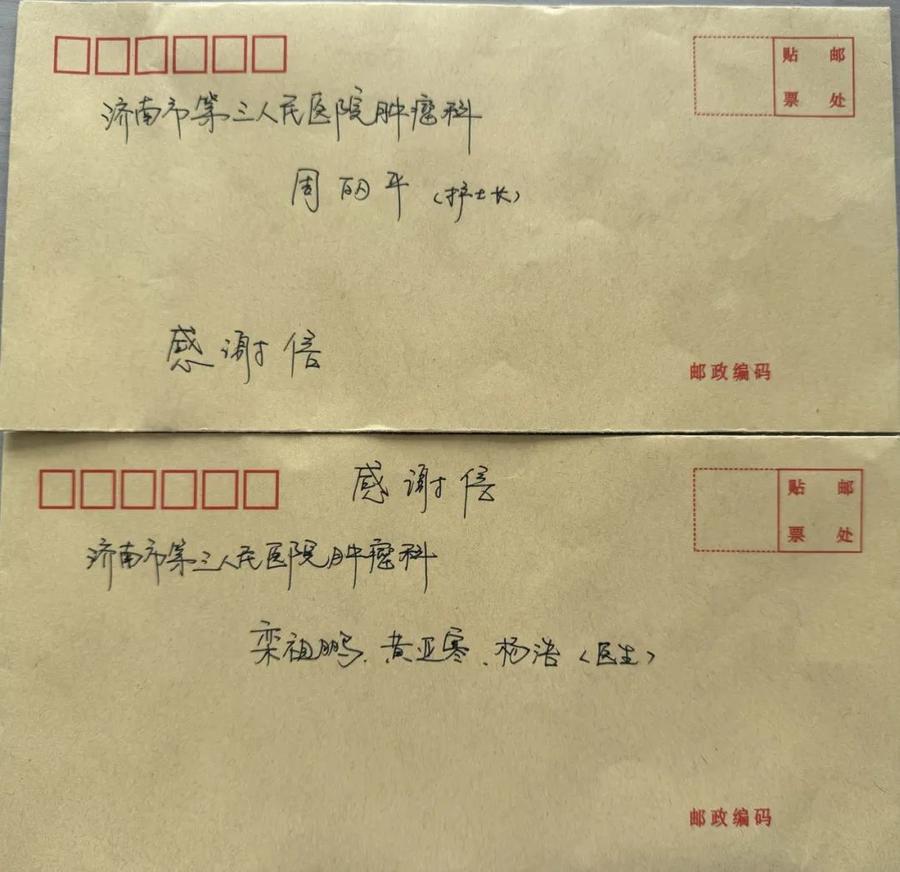 贴 邮
票 处
济南市第三人民医院肿瘤科
周丽平（护士长）
感谢信
邮政编码
感谢信
贴 邮
票 处
济南市第三人民医院肿瘤科
栾祖鹏、黄亚寒、杨浩（医生）
邮政编码